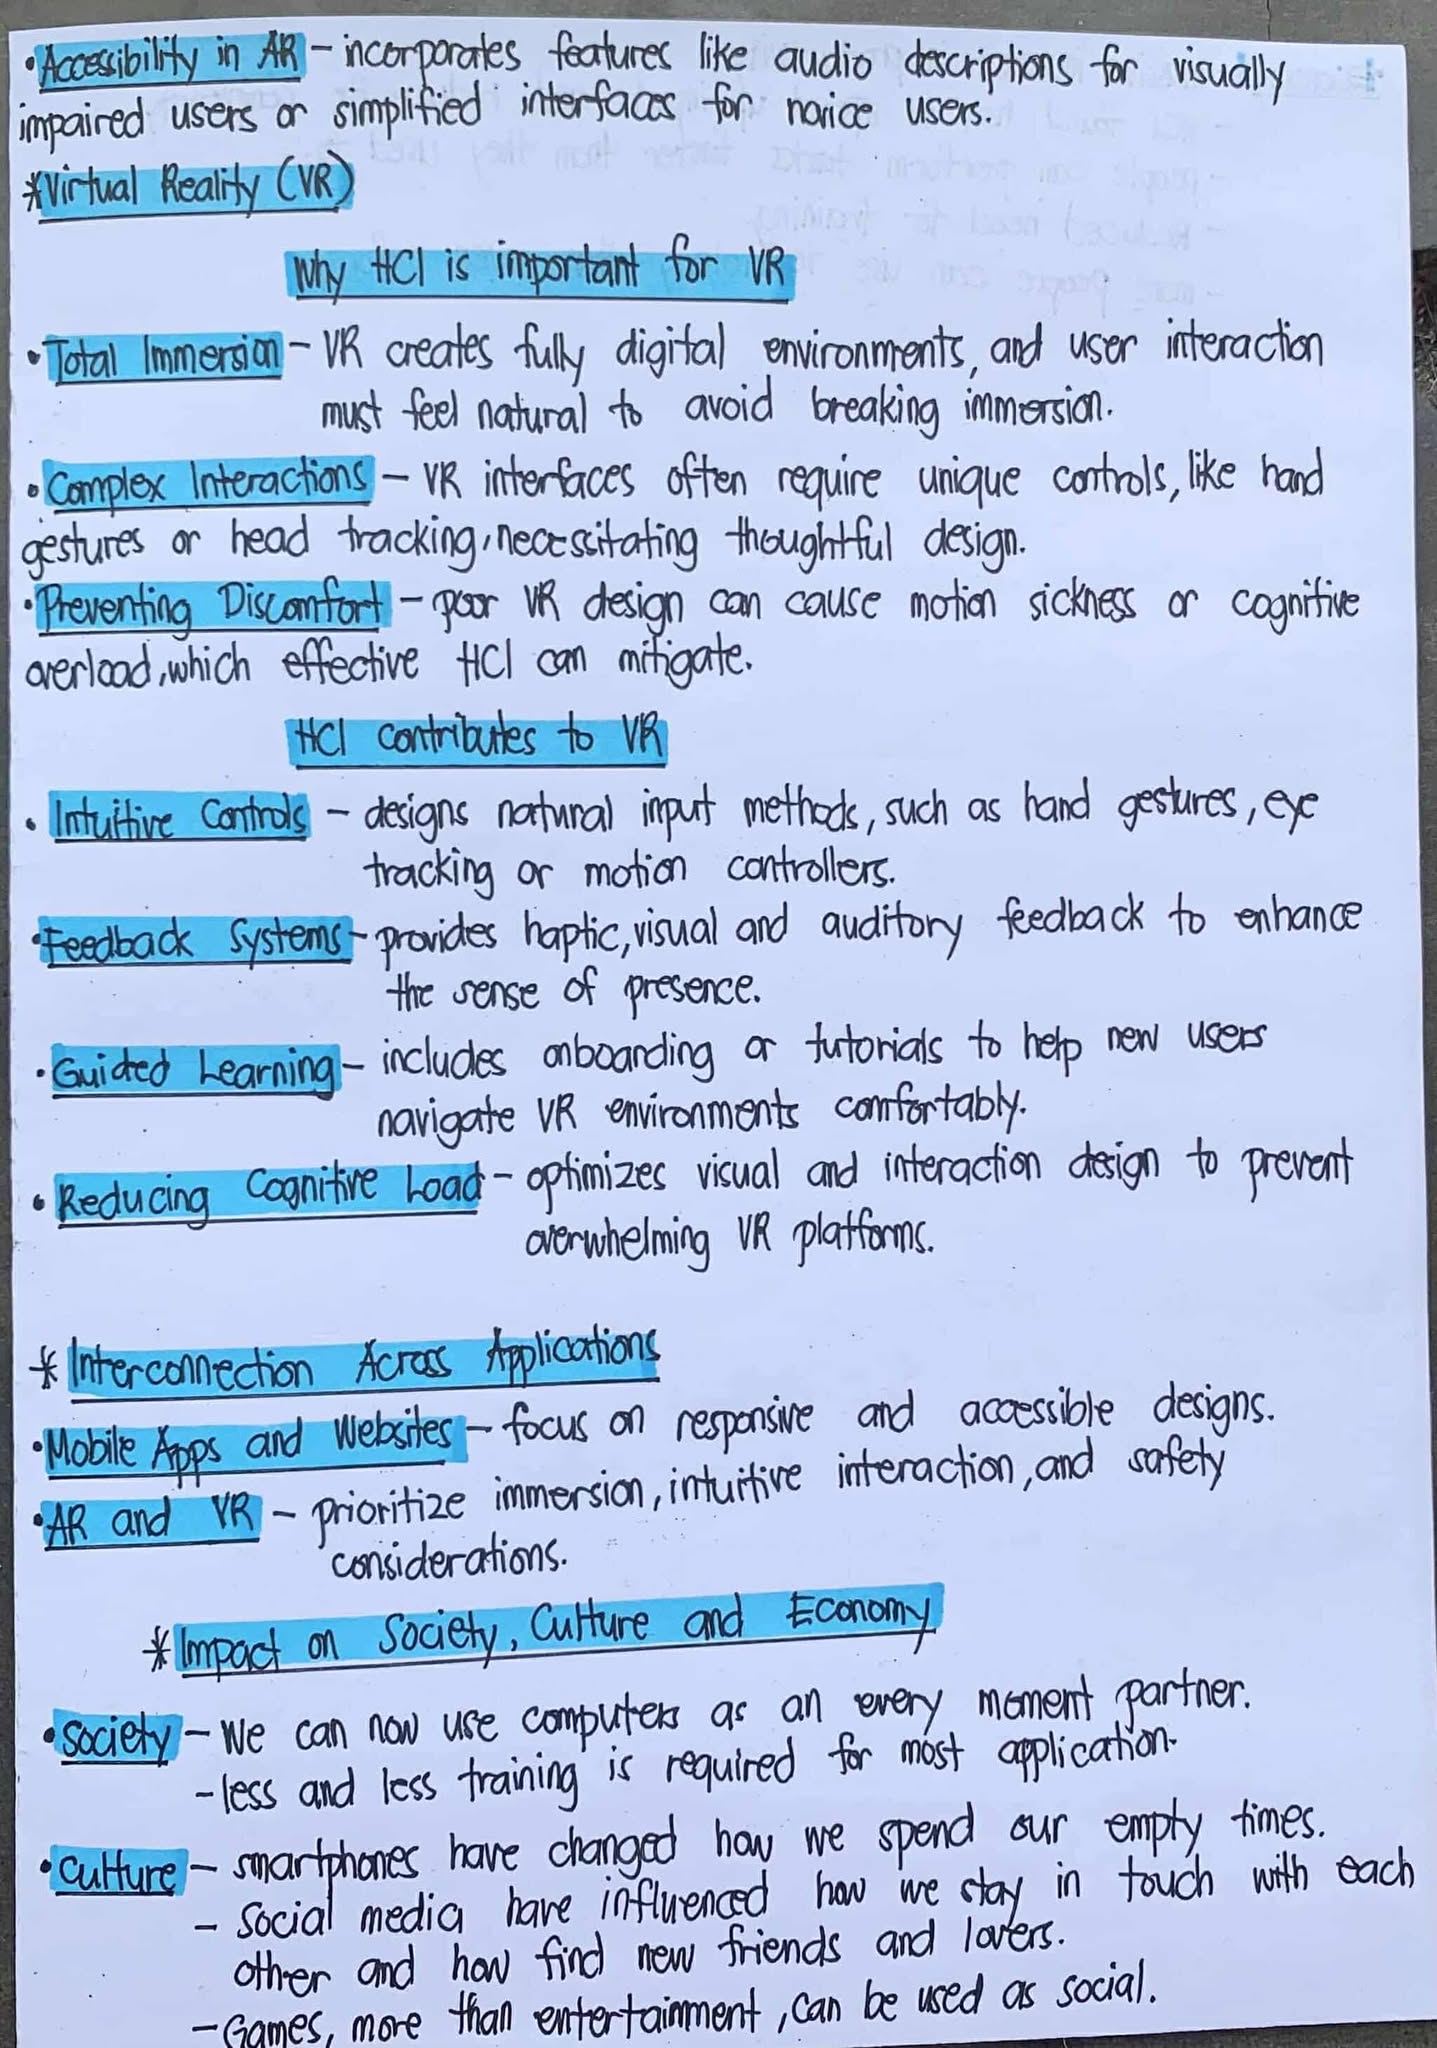 • Accessibility in AR – incorporates features like audio descriptions for visually
impaired users or simplified interfaces for novice users.
* Virtual Reality (VR)
Why HCI is important for VR
• Total Immersion – VR creates fully digital environments, and user interaction
must feel natural to avoid breaking immersion.
• Complex Interactions – VR interfaces often require unique controls, like hand
gestures or head tracking, necessitating thoughtful design.
• Preventing Discomfort – poor VR design can cause motion sickness or cognitive
overload, which effective HCI can mitigate.
HCI contributes to VR
• Intuitive Controls – designs natural input methods, such as hand gestures, eye
tracking or motion controllers.
• Feedback Systems – provides haptic, visual and auditory feedback to enhance
the sense of presence.
• Guided Learning – includes onboarding or tutorials to help new users
navigate VR environments comfortably.
• Reducing Cognitive Load – optimizes visual and interaction design to prevent
overwhelming VR platforms.
* Interconnection Across Applications
• Mobile Apps and Websites – focus on responsive and accessible designs.
• AR and VR – prioritize immersion, intuitive interaction, and safety
considerations.
* Impact on Society, Culture and Economy
• Society – We can now use computers as an every moment partner.
- less and less training is required for most application.
• Culture – smartphones have changed how we spend our empty times.
- Social media have influenced how we stay in touch with each
other and how find new friends and lovers.
- Games, more than entertainment, can be used as social.